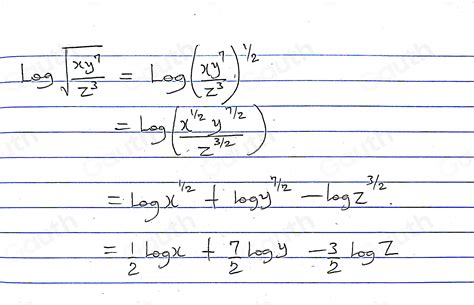 Log √(xy⁷/z³) = Log(xy⁷/z³)^1/2
= Log(x^1/2 y^7/2 / z^3/2)
= Log x^1/2 + log y^7/2 − log z^3/2.
= 1/2 log x + 7/2 log y − 3/2 log z